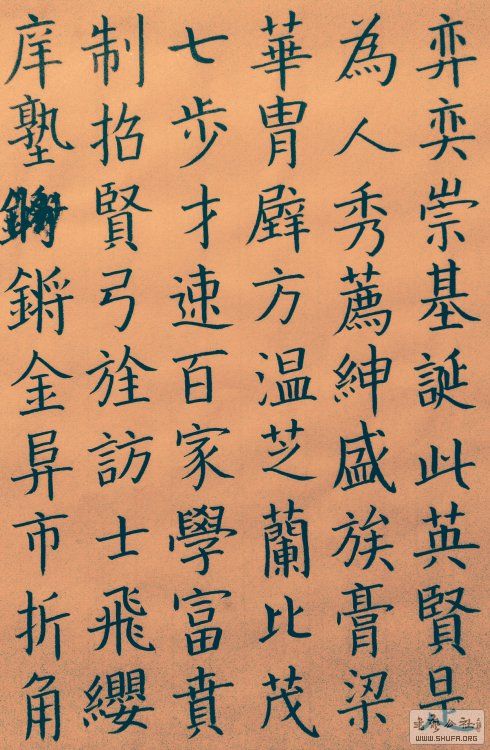 弈弈崇基誕此英賢是
為人秀薦紳盛族膏梁
華胄璧方温芝蘭比茂
七步才速百家學富賁
制招賢弓旌訪士飛纓
庠塾鏘金昇市折角
WWW.SHUFA.ORG